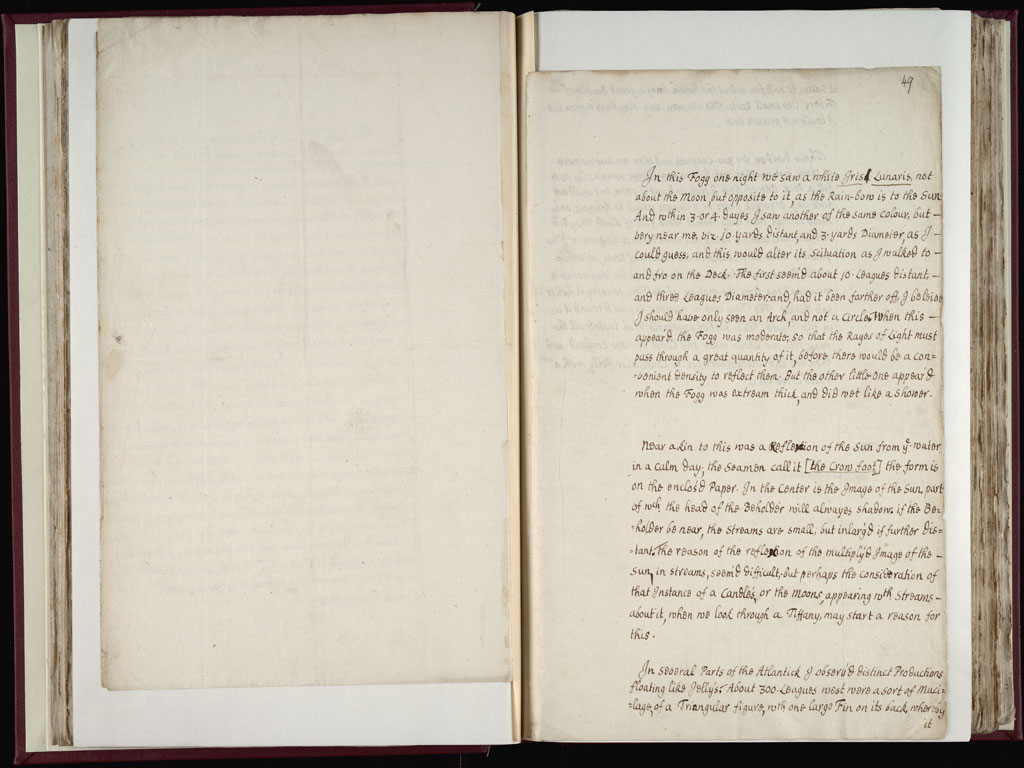 49
In this Fogg one night we saw a white Iris Lunaris, not
about the Moon but opposite to it, as the Rain-bow is to the Sun
And wthin 3 or 4 dayes I saw another of the same colour, but
very near me, viz. 10 yards distant, and 3 yards Diameter, as I
could guess, and this would alter its Scituation as I walked to
and fro on the Deck. The first seem'd about 10 Leagues distant,
and three Leagues Diameter, and, had it been farther off, I beleive
I should have only seen an Arch, and not a Circle. When this
appear'd the Fogg was moderate, so that the Rayes of Light must
pass through a great quantity of it, before there would be a con=
=venient density to reflect them. But the other little one appear'd
when the Fogg was extream thick, and did wet like a Shower.
Near a kin to this was a Reflexion of the Sun from ye water
in a calm day, the Seamen call it [the Crow foot] the form is
on the enclos'd Paper. In the Center is the Image of the Sun, part
of wch the head of the Beholder will alwayes shadow. if the Be=
=holder be near, the Streams are small, but inlarg'd if further Dis=
=tant. The reason of the reflexion of the multiply'd Image of the
Sun, in streams, seem'd difficult, but perhaps the consideration of
that Instance of a Candle's, or the Moons, appearing wth Streams
about it, when we look through a Tiffany, may start a reason for
this.
In several Parts of the Atlantick I observ'd distinct Productions
floating like Jelly's. About 300 Leagues west were a sort of Muci=
=lage, of a Triangular figure, wth one large Fin on its back, whereby
it